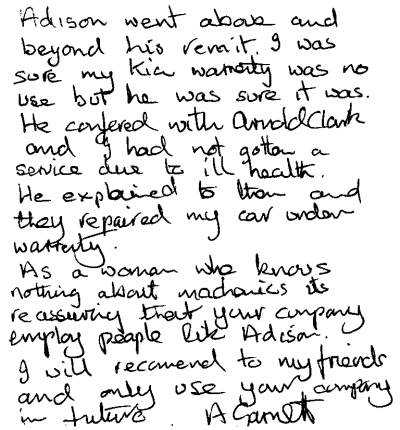 Adison went above and
beyond his remit. I was
sure my Kia warrerty was no
use but he was sure it was.
He confered with Arnold Clark
and I had not gotton a
service due to ill health.
He explained to them and
they repaired my car under
warrerty.
As a woman who knows
nothing about mechanics its
reassuring that your company
employ people like Adison.
I will recomend to my friends
and only use your company
in future. A Garnett